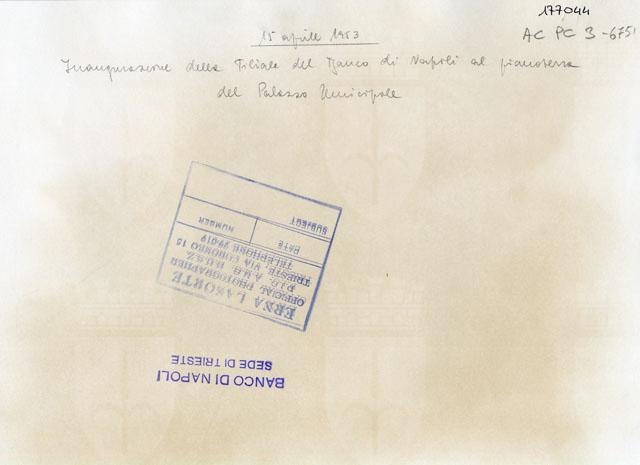 177044
AC PC 3-675
15 aprile 1953
Inaugurazione della Filiale del Banco di Napoli al pianoterra
del Palazzo Municipale
ERNA LAFORTE
OFFICIAL PHOTOGRAPHER
P.I.O. A.M.G. B.U.S.Z.
TRIESTE VIA CORONEO 15
TELEPHONE 29019
DATE
NUMBER
SUBJECT
BANCO DI NAPOLI
SEDE DI TRIESTE